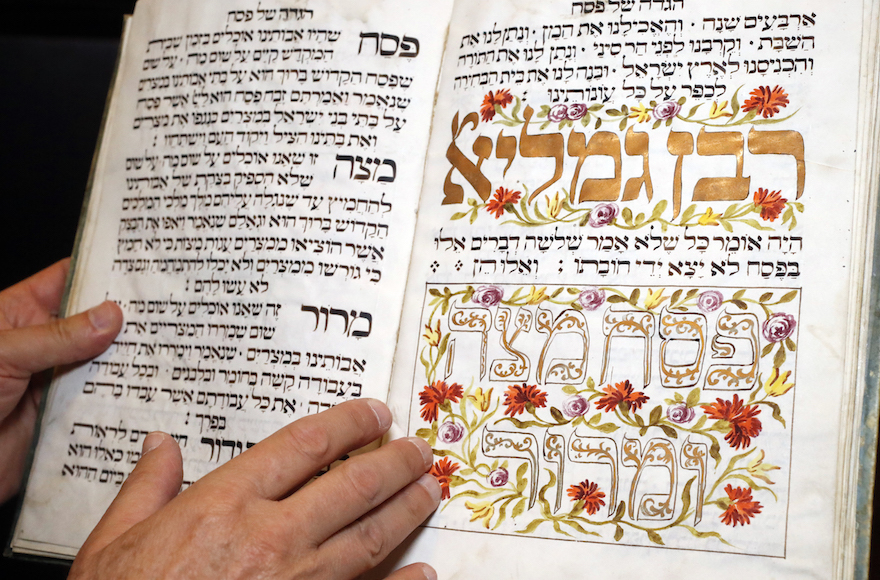 הגדה של פסח
ארבעים שנה · והאכילנו את המן · ונתן לנו את
השבת · וקרבנו לפני הר סיני · ונתן לנו את התורה
והכניסנו לארץ ישראל · ובנה לנו את בית הבחירה
לכפר על כל עונותינו :
רבן גמליאל
היה אומר כל שלא אמר שלשה דברים אלו
בפסח לא יצא ידי חובתו : ואלו הן
פסח מצה
ומרור
הגדה של פסח
פסח שהיו אבותינו אוכלים בזמן שבית
המקדש קים על שום מה · על שום
שפסח הקדוש ברוך הוא על בתי אבותינו במצרים
שנאמר ואמרתם זבח פסח הוא ליי אשר פסח
על בתי בני ישראל במצרים בנגפו את מצרים
ואת בתינו הציל ויקוד העם וישתחוו :
מצה זו שאנו אוכלים על שום מה · על שום
שלא הספיק בצקת של אבותינו
להחמיץ עד שנגלה עליהם מלך מלכי המלכים
הקדוש ברוך הוא וגאלם שנאמר ויאפו את הבצק
אשר הוציאו ממצרים עגות מצות כי לא חמץ
כי גורשו ממצרים ולא יכלו להתמהמה וגם צדה
לא עשו להם :
מרור זה שאנו אוכלים על שום מה ·
שום שמררו המצריים את
אבותינו במצרים · שנאמר וימררו את
בעבודה קשה בחומר ובלבנים · ובכל עבודה
את כל עבודתם אשר עבדו בהם
בפרך :
ודור לראות
כאלו הוא
ביום ההוא